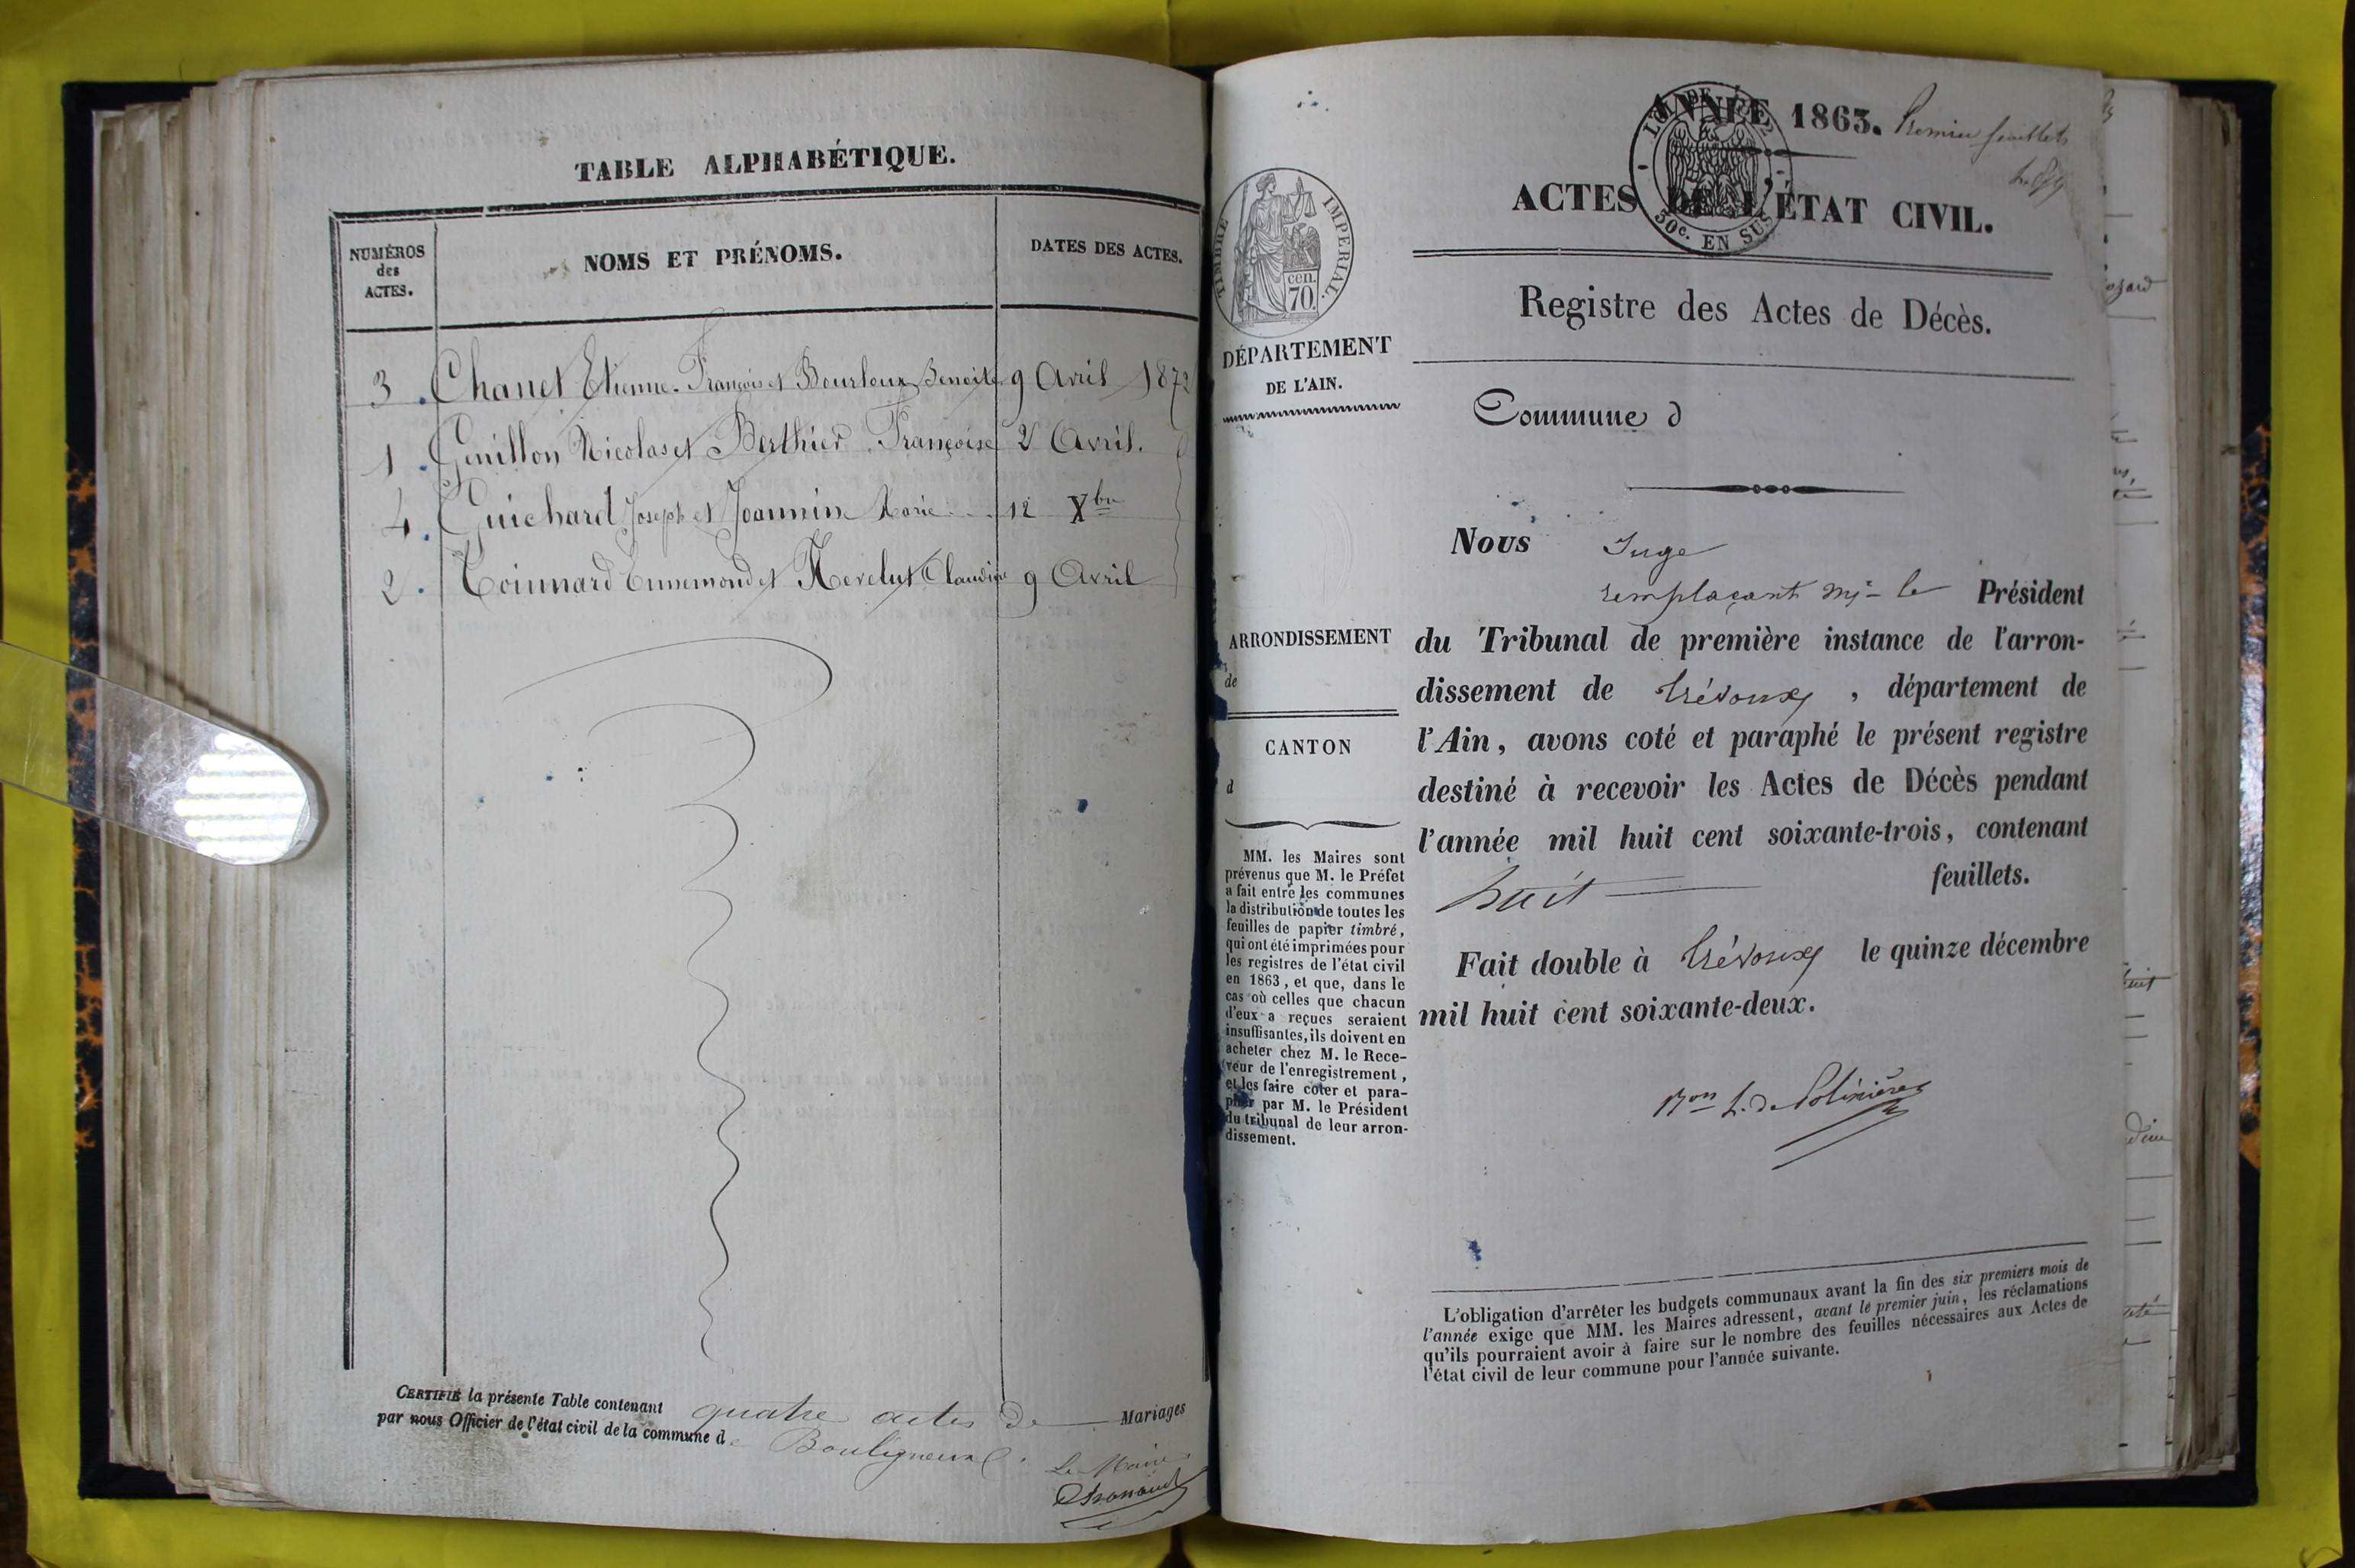 TABLE ALPHABÉTIQUE.
NUMÉROS
des
ACTES.
NOMS ET PRÉNOMS.
DATES DES ACTES.
3 . Chanel Etienne-François et Bourleux Benoite 9 Avril 1872
1 . Genillon Nicolas et Berthier Françoise 2 Avril.
4 . Guichard Joseph et Joannin Marie 12 Xbre
2 . Toinnard Ennemond et Revelut Claudine 9 Avril
CERTIFIÉ la présente Table contenant quatre actes de Mariages
par nous Officier de l'état civil de la commune de Bouligneux.
Le Maire
ANNÉE 1863. Premier feuillet
ACTES DE L'ÉTAT CIVIL.
LOI DE 2
50c. EN SUS
TIMBRE IMPERIAL.
cen.
70.
Registre des Actes de Décès.
DÉPARTEMENT
DE L'AIN.
Commune d
Nous Juge
remplaçant le Président
du Tribunal de première instance de l'arron-
dissement de Trévoux, département de
l'Ain, avons coté et paraphé le présent registre
destiné à recevoir les Actes de Décès pendant
l'année mil huit cent soixante-trois, contenant
huit feuillets.
Fait double à Trévoux le quinze décembre
mil huit cent soixante-deux.
ARRONDISSEMENT
de
CANTON
d
MM. les Maires sont
prévenus que M. le Préfet
a fait entre les communes
la distribution de toutes les
feuilles de papier timbré,
qui ont été imprimées pour
les registres de l'état civil
en 1863, et que, dans le
cas où celles que chacun
d'eux a reçues seraient
insuffisantes, ils doivent en
acheter chez M. le Rece-
veur de l'enregistrement,
et les faire coter et para-
pher par M. le Président
du tribunal de leur arron-
dissement.
L'obligation d'arrêter les budgets communaux avant la fin des six premiers mois de
l'année exige que MM. les Maires adressent, avant le premier juin, les réclamations
qu'ils pourraient avoir à faire sur le nombre des feuilles nécessaires aux Actes de
l'état civil de leur commune pour l'année suivante.